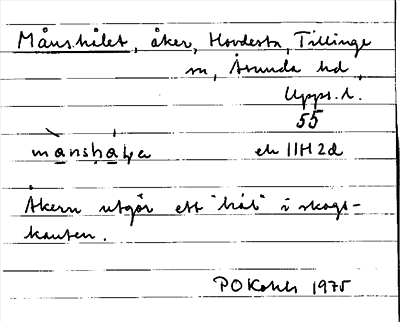 Månshålet, åker, Hovdesta, Tillinge
sn, Åsunda hd,
Upps. l.
55
ek 11H 2d
Åkern utgör ett "hål" i skogs-
kanten.
1975